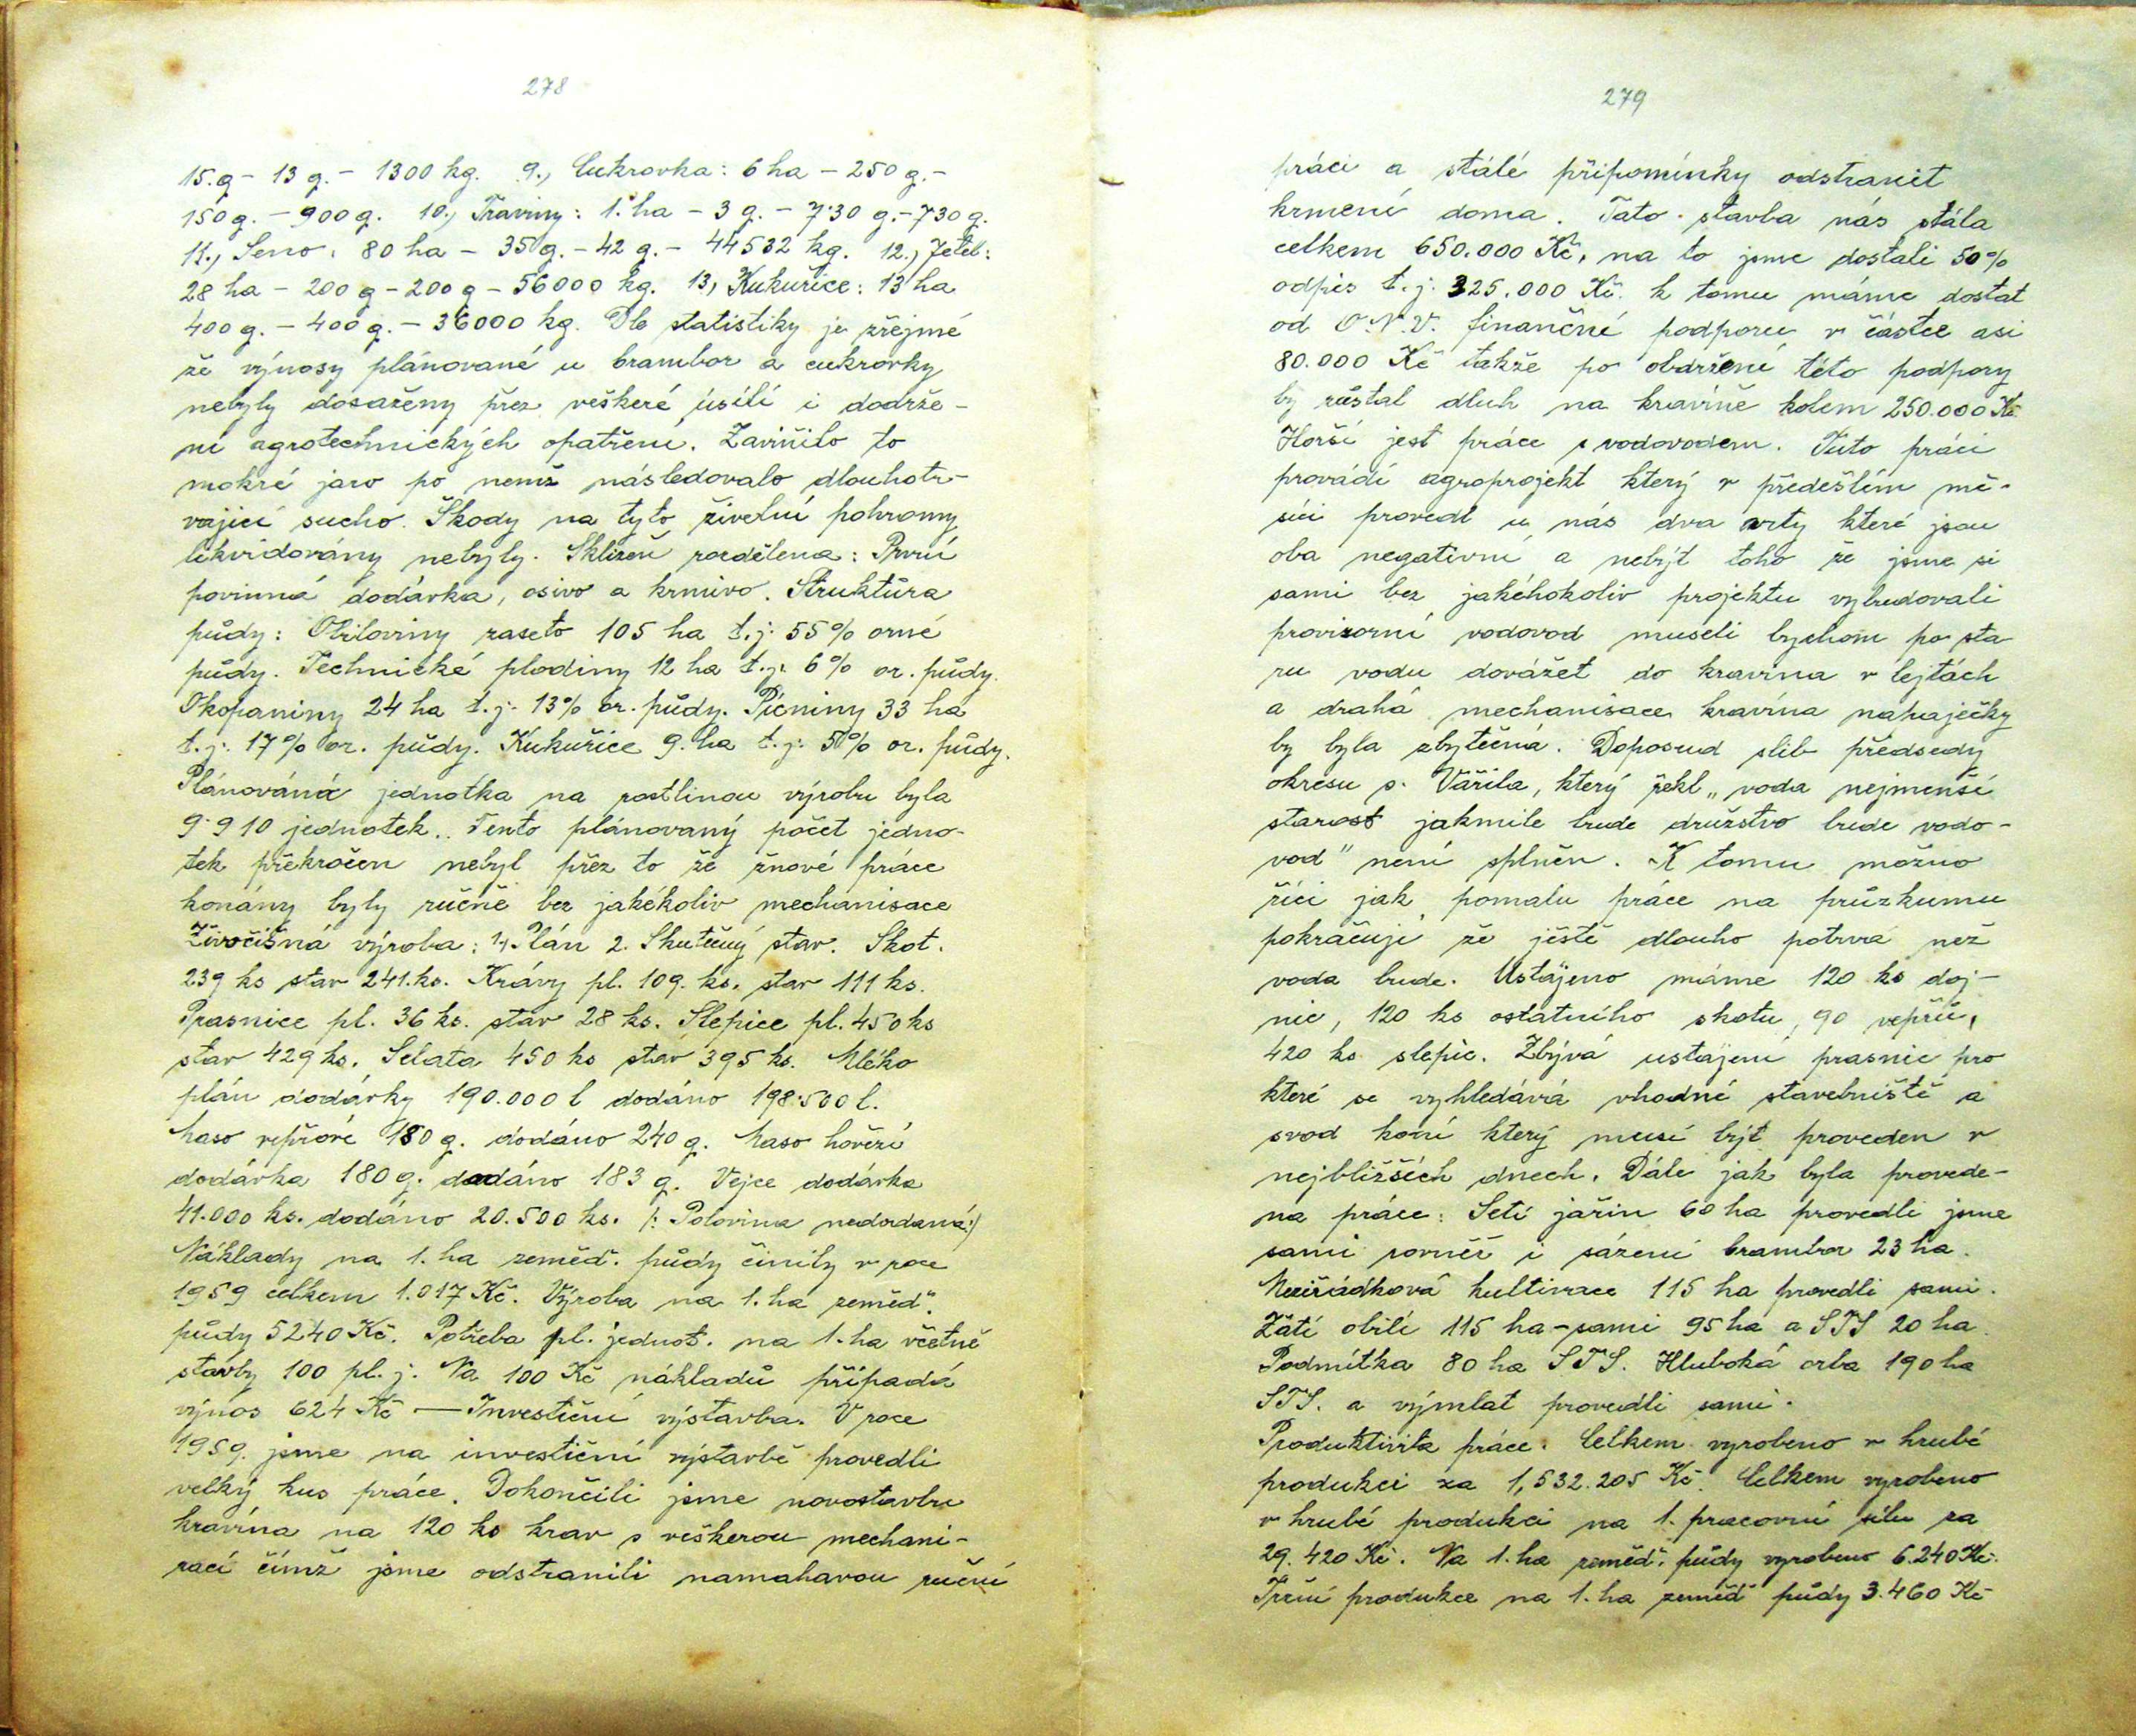 278
15.q - 13 q. - 1300 kg. 9., Cukrovka: 6 ha - 250 q. -
150 q. - 900 q. 10., Traviny: 1. ha - 3 q. - 7·30 q. - 730 q.
11., Seno: 80 ha - 35 q. - 42 q. - 44532 kg. 12., Jetel:
28 ha - 200 q - 200 q - 56000 kg. 13, Kukuřice: 13 ha
400 q. - 400 q. - 36000 kg. Dle statistiky je zřejmé
že výnosy plánované u brambor a cukrovky
nebyly dosaženy přez veškeré úsilí i dodrže-
ní agrotechnických opatření. Zavinilo to
mokré jaro po nemž následovalo dlouhotr-
vající sucho. Škody na tyto živelní pohromy
likvidovány nebyly. Sklizeň rozdělena: První
povinná dodávka, osivo a krmivo. Struktůra
půdy: Obiloviny zaseto 105 ha t.j. 55% orné
půdy. Technické plodiny 12 ha t.j. 6% or. půdy.
Okopaniny 24 ha t.j. 13% or. půdy. Pícniny 33 ha
t.j. 17% or. půdy. Kukuřice 9. ha t.j. 5% or. půdy.
Plánováná jednotka na rostlinou výrobu byla
9·910 jednotek.. Tento plánovaný počet jedno-
tek překročen nebyl přez to že žnové práce
konány byly ručně bez jakékoliv mechanisace
Živočišná výroba: 1, Plán 2. Skutečný stav. Skot.
239 ks stav 241. ks. Krávy pl. 109. ks. stav 111 ks.
Prasnice pl. 36 ks. stav 28 ks. Slepice pl. 450 ks
stav 429 ks. Selata 450 ks stav 395 ks. Mléko
plán dodávky 190.000 l dodáno 198·500 l.
Maso vepřové 180 q. dodáno 240 q. Maso hovězí
dodávka 180 q. dodáno 183 q. Vejce dodávka
41.000 ks. dodáno 20.500 ks. /: Polovina nedodaná:/
Náklady na 1. ha zeměd. půdy činily v roce
1959 celkem 1.017 Kč. Výroba na 1. ha zeměd.
půdy 5240 Kč. Potřeba pl. jednot. na 1. ha včetně
stavby 100 pl. j. Na 100 Kč nákladů připadá
výnos 624 Kč — Investiční výstavba. V roce
1959. jsme na investiční výstavbě provedli
velký kus práce. Dokončili jsme novostavbu
kravína na 120 ks krav s veškerou mechani-
zací čímž jsme odstranili namahavou ruční
279
práci a stálé připomínky odstranit
krmení doma. Tato stavba nás stála
celkem 650.000 Kč, na to jsme dostali 50%
odpis t.j. 325.000 Kč. k tomu máme dostat
od O.N.V. finanční podporu v částce asi
80.000 Kč takže po obdržení této podpory
by zůstal dluh na kravíně kolem 250.000 Kč
Horší jest práce s vodovodem. Tuto práci
provádí agroprojekt který v předešlém mě-
síci provedl u nás dva vrty které jsou
oba negativní a nebýt toho že jsme si
sami bez jakéhokoliv projektu vybudovali
provizorní vodovod museli bychom po sta
ru vodu dovážet do kravína v lejtách
a drahá mechanisace kravína napaječky
by byla zbytečná. Doposud slib předsedy
okresu s. Vářila, který řekl „voda nejmenší
starost jakmile bude družstvo bude vodo-
vod" není splněn. K tomu možno
říci jak pomalu práce na průzkumu
pokračuje že ještě dlouho potrvá než
voda bude. Ustájeno máme 120 ks doj-
nic, 120 ks ostatního skotu, 90 vepřů,
420 ks slepic. Zbývá ustájení prasnic pro
které se vyhledává vhodné stavebniště a
svod koní který musí být proveden v
nejbližších dnech. Dále jak byla provede-
na práce: Setí jařin 60 ha provedli jsme
sami rovněž i sázení brambor 23 ha.
Meziřádková kultivace 115 ha provedli sami.
Žatí obilí 115 ha - sami 95 ha a STS 20 ha.
Podmítka 80 ha STS. Hluboká orba 190 ha
STS. a výmlat provedli sami.
Produktivita práce. Celkem vyrobeno v hrubé
produkci za 1,532.205 Kč. Celkem vyrobeno
v hrubé produkci na 1. pracovní sílu za
29.420 Kč. Na 1. ha zeměd. půdy vyrobeno 6.240 Kč.
Tržní produkce na 1. ha zeměd půdy 3.460 Kč